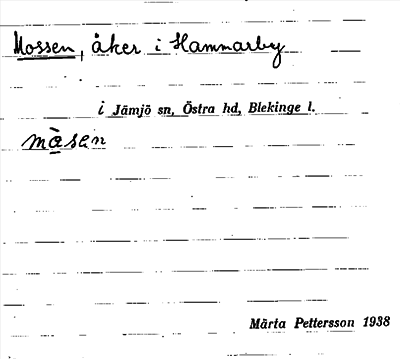 Mossen, åker i Hammarby
i Jämjö sn, Östra hd, Blekinge l.
mòsen
Märta Pettersson 1938